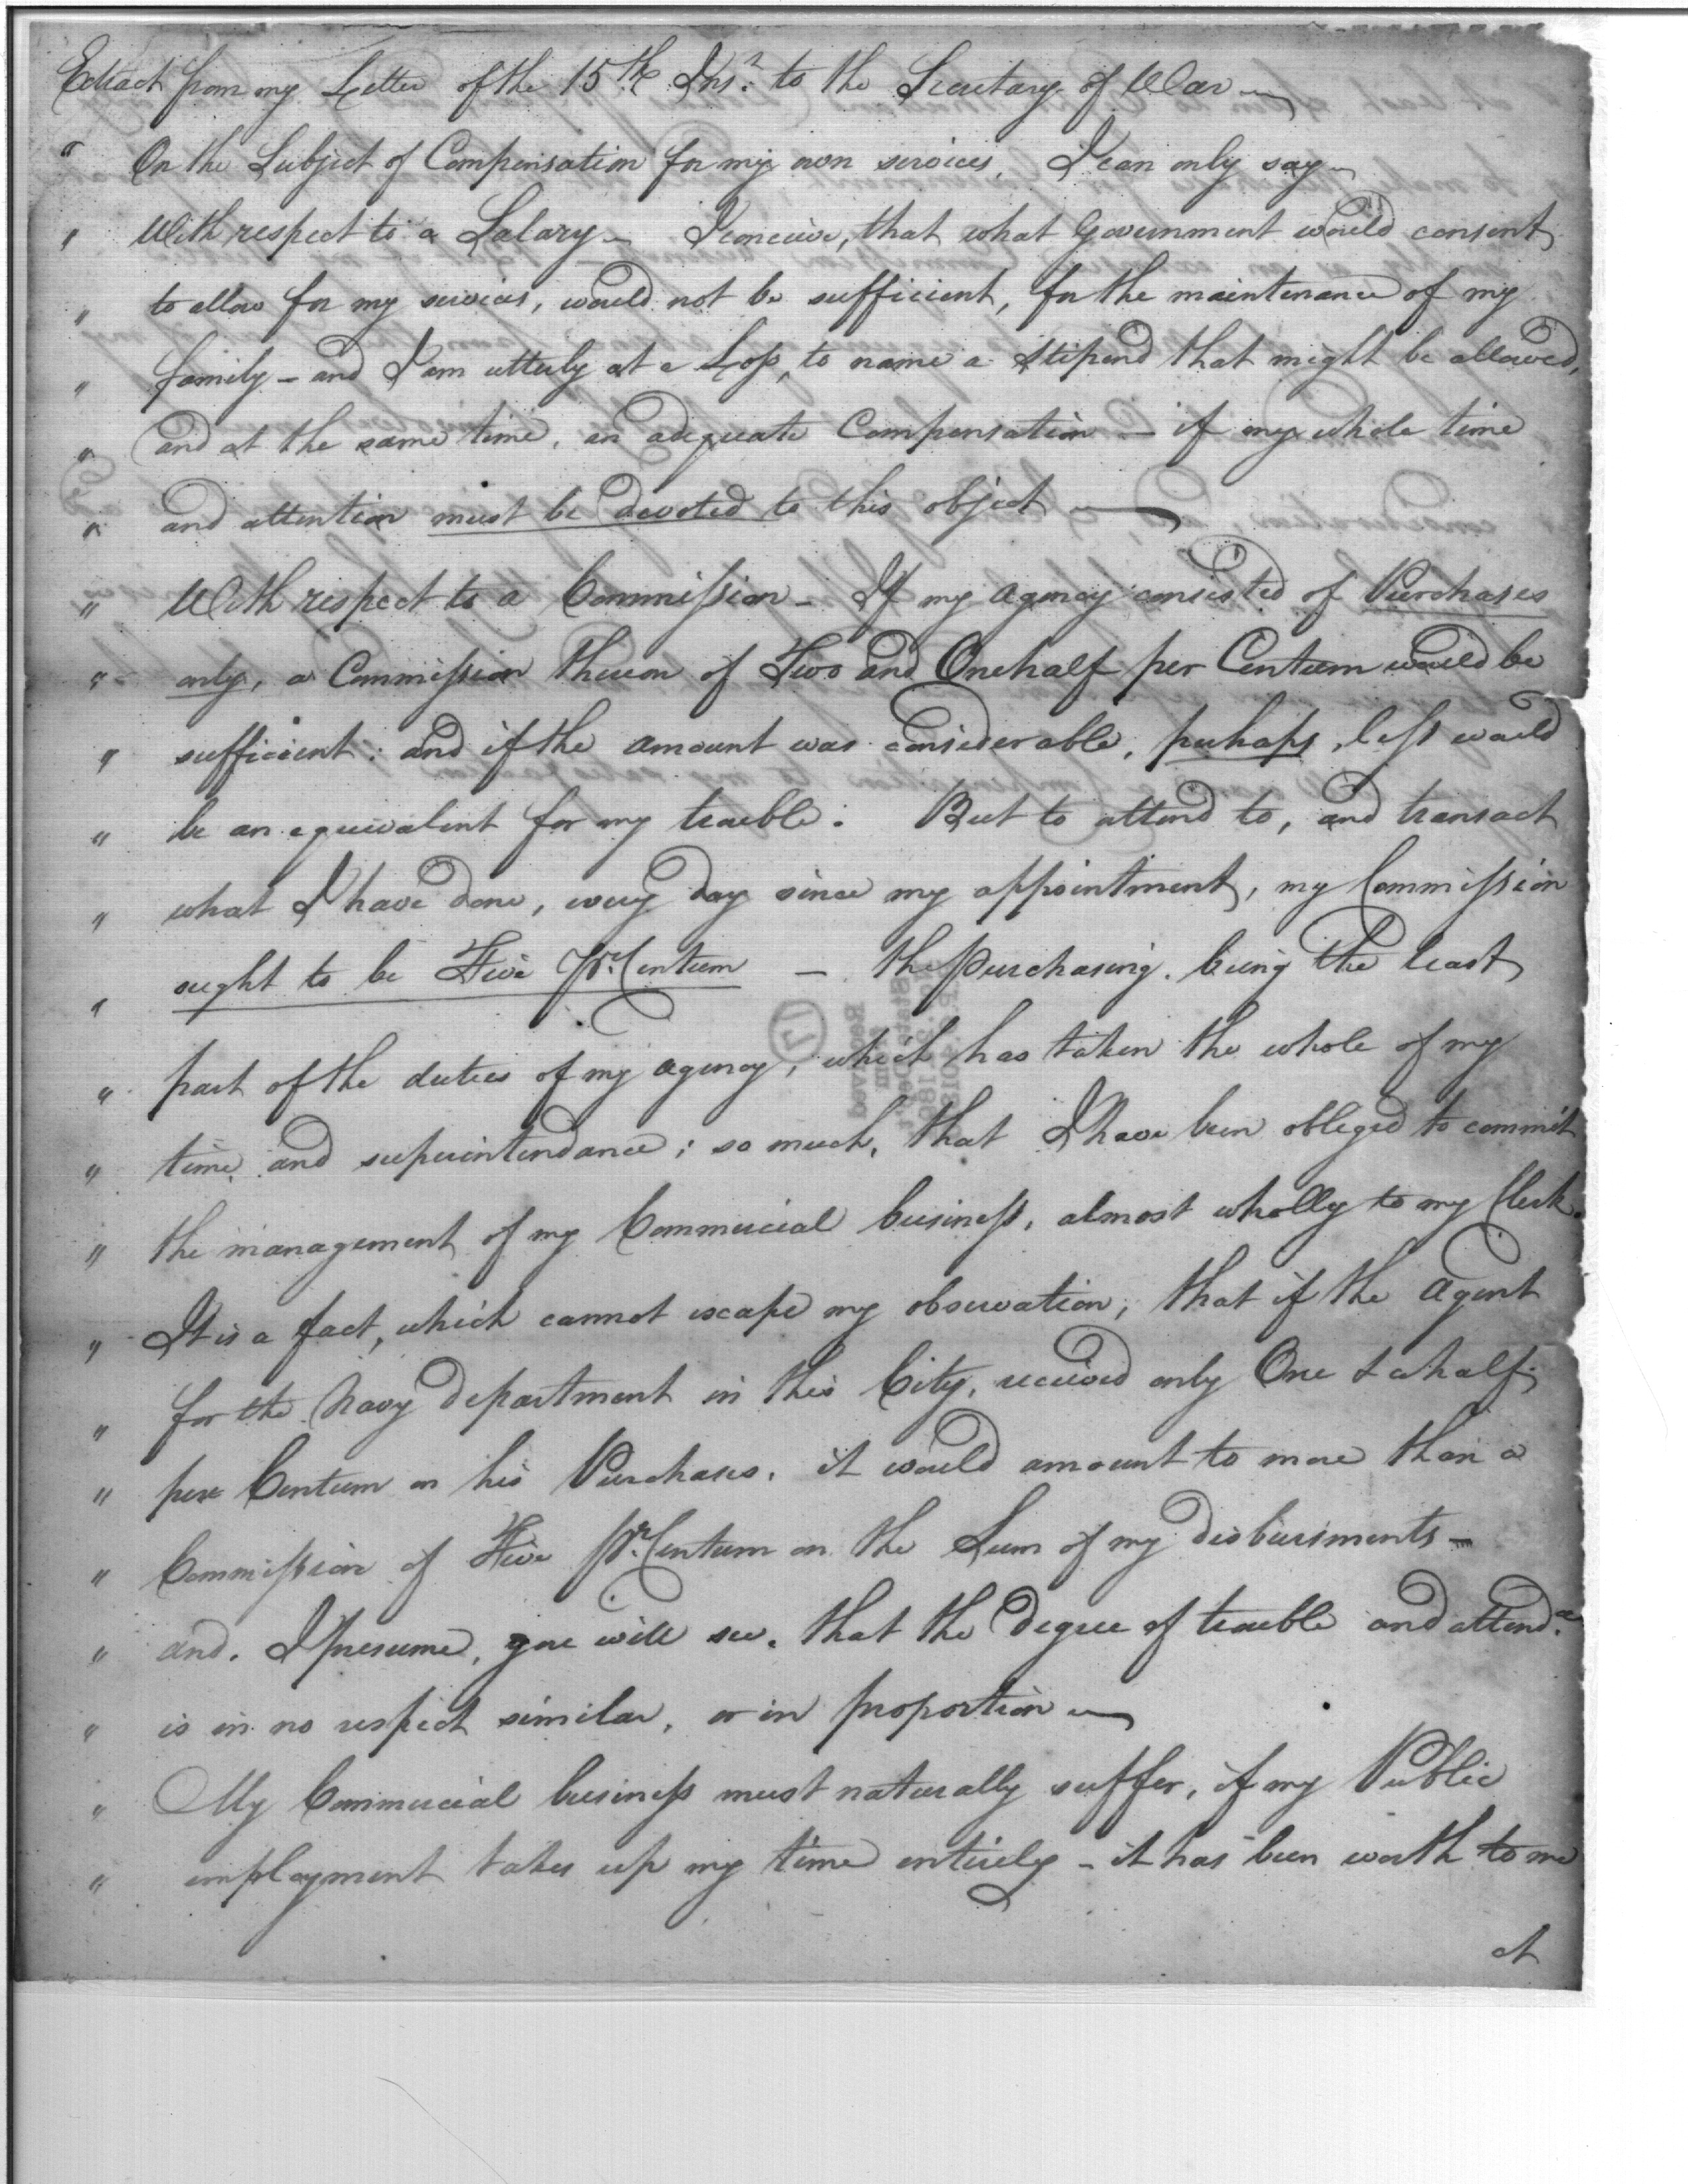 Extract from my Letter of the 15th Inst. to the Secretary of War
" On the Subject of Compensation for my own services, I can only say
" With respect to a Salary - I conceive, that what Government would consent
" to allow for my services, would not be sufficient, for the maintenance of my
" family - and I am utterly at a Loss, to name a Stipend that might be allowed,
" and at the same time, an adequate Compensation - if my whole time
" and attention must be devoted to this object
" With respect to a Commission - If my Agency consisted of Purchases
" only, a Commission thereon of Two and Onehalf per Centum would be
" sufficient: and if the amount was considerable, perhaps, less would
" be an equivalent for my trouble: But to attend to, and transact
" what I have done, every day since my appointment, my Commission
" ought to be Five Pr. Centum - the purchasing, being the least
" part of the duties of my Agency, which has taken the whole of my
" time, and superintendance; so much, that I have been obliged to commit
" the management of my Commercial business, almost wholly to my Clerk.
" It is a fact, which cannot escape my observation, that if the Agent
" for the Navy department in this City, received only One & a half
" per Centum on his Purchases, it would amount to more than a
" Commission of Five Pr. Centum on the Sum of my disbursments -
" and, I presume, you will see, that the Degree of trouble and attendce.
" is in no respect similar, or in proportion
" My Commercial business must naturally suffer, if my Public
" employment takes up my time entirely - it has been worth to me
at
17
Received
from